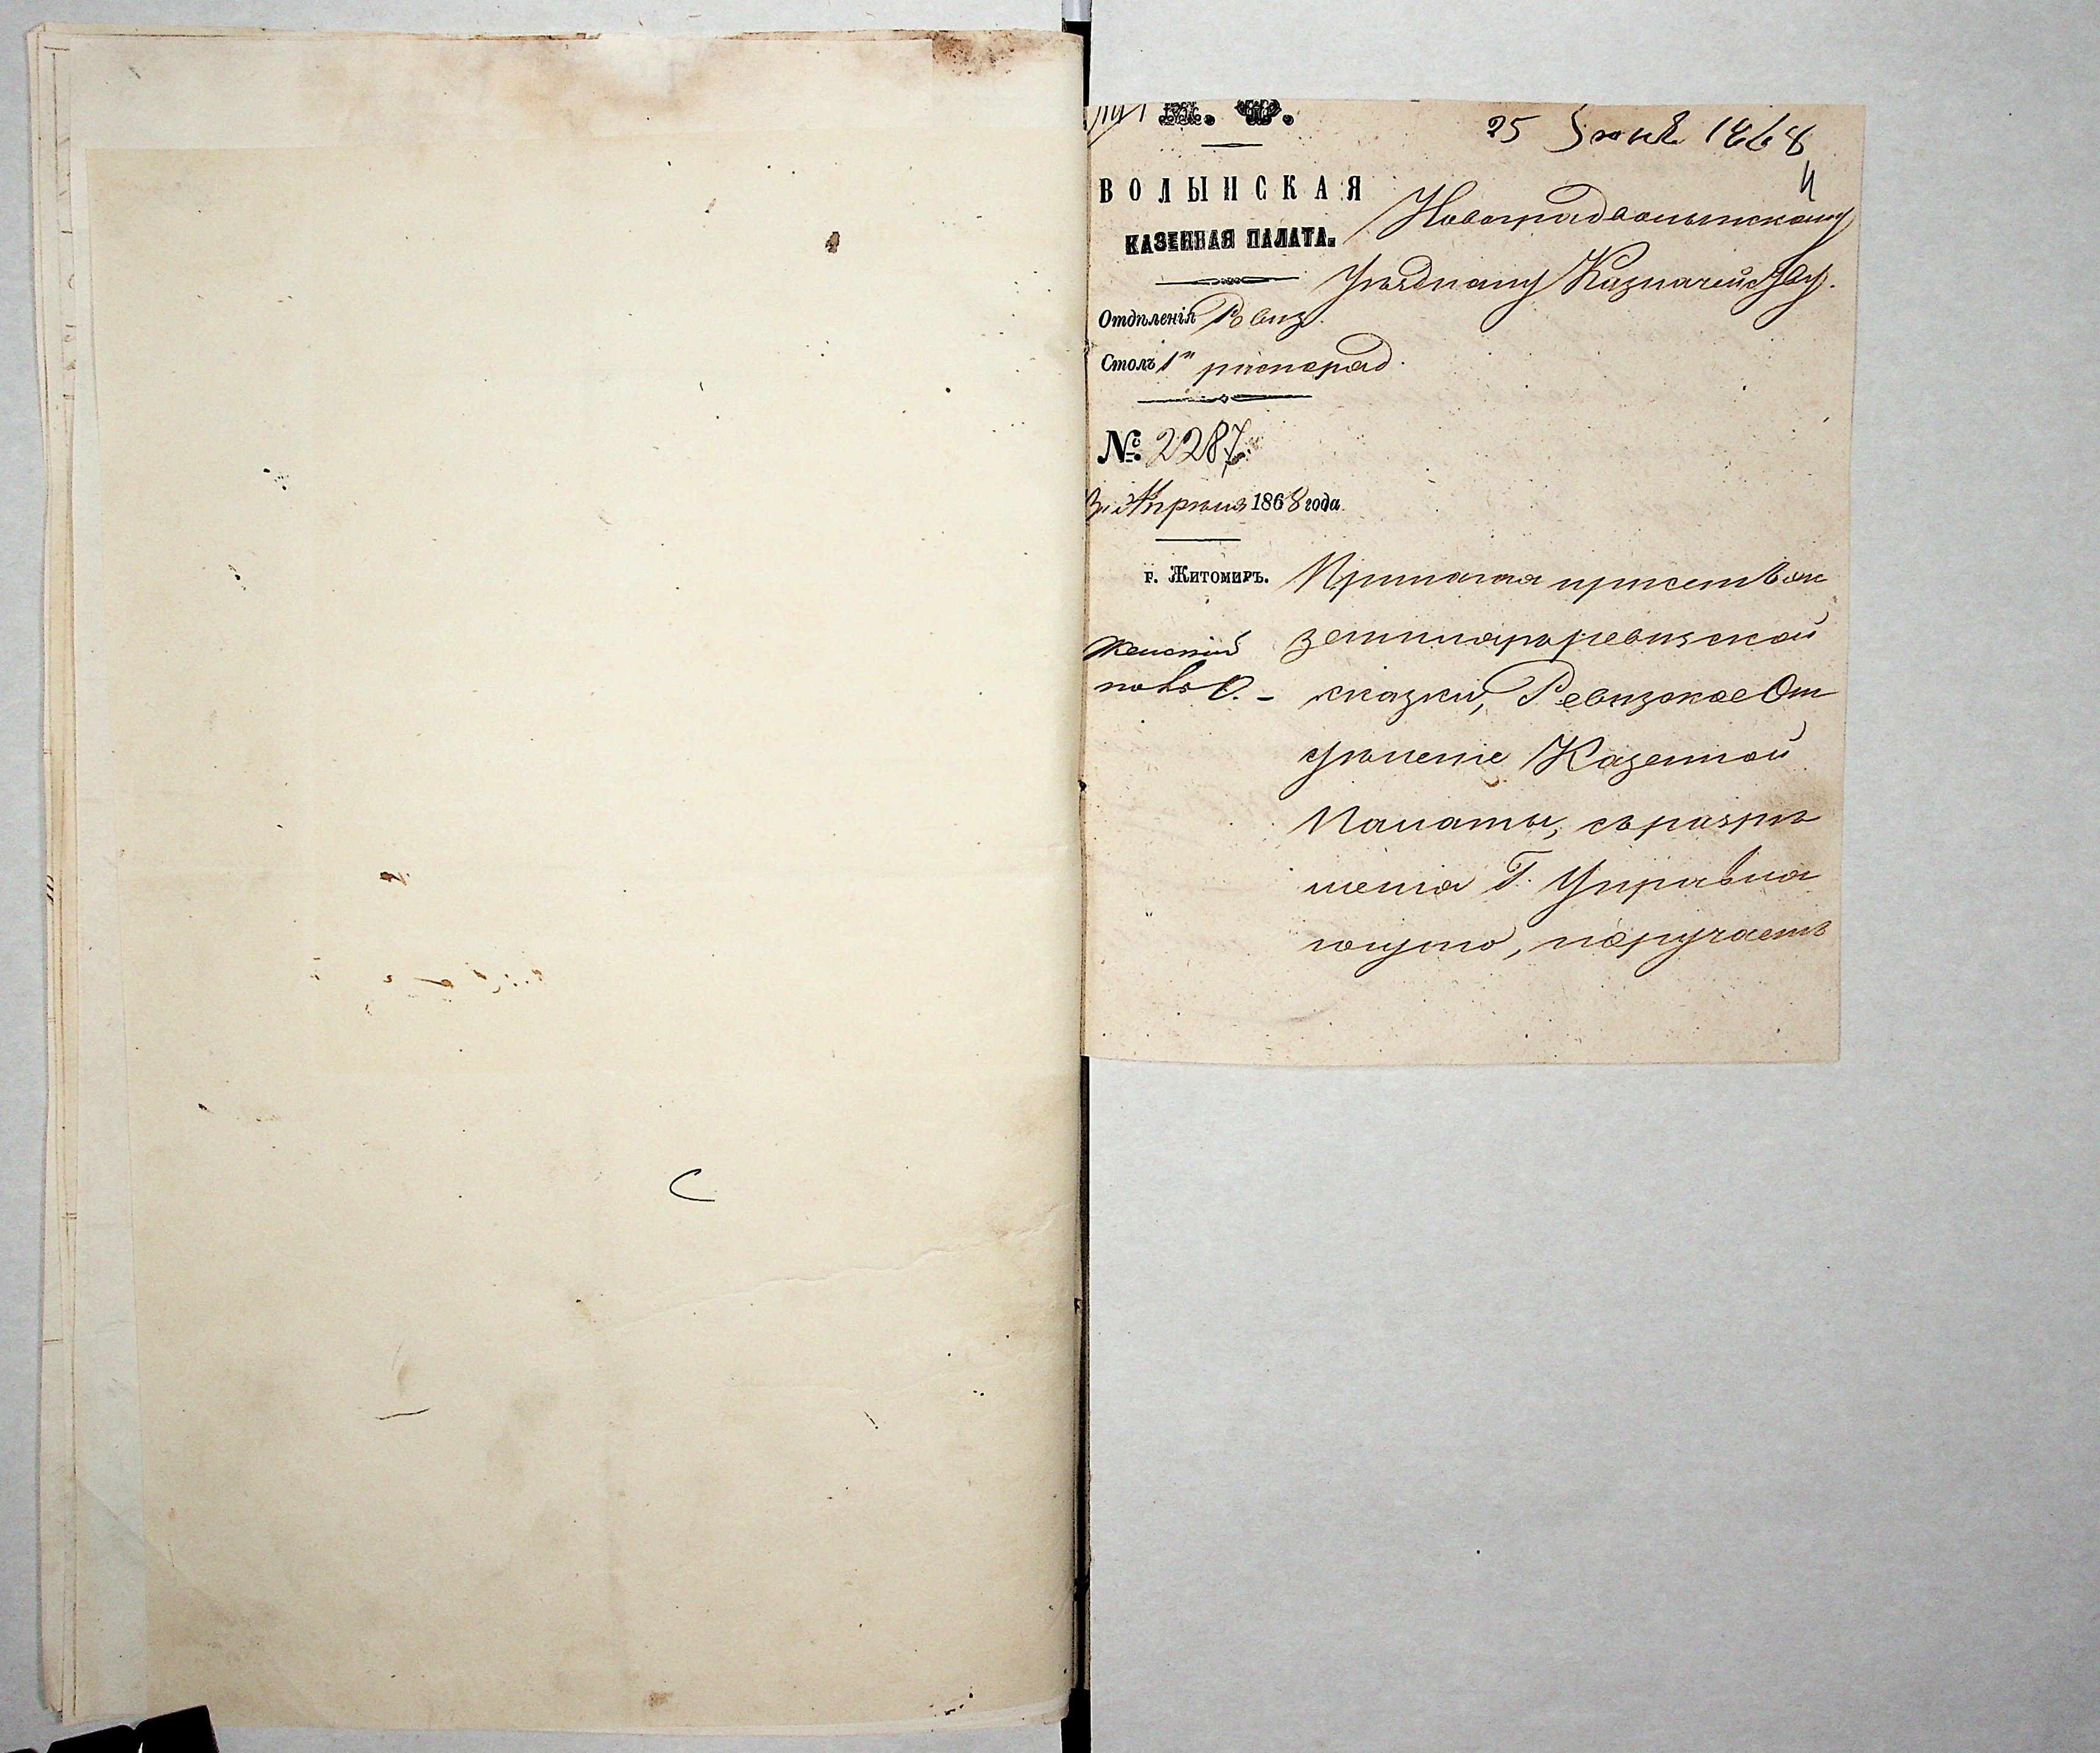 М. Ф.
25 Іюня 1868
4
ВОЛЫНСКАЯ
КАЗЕННАЯ ПАЛАТА.
Новоградволынскому
Уѣздному Казначейству.
Отдѣленія Ревиз.
Столъ 1й распоряд.
№ 2287.
Апрѣля 1868 года
г. Житомиръ.
Прилагая при семъ эк
земпляръ ревизской
сказки, Ревизское От
дѣленіе Казенной
Палаты, съ разрѣ
шенія Г. Управля
ющаго, поручаетъ